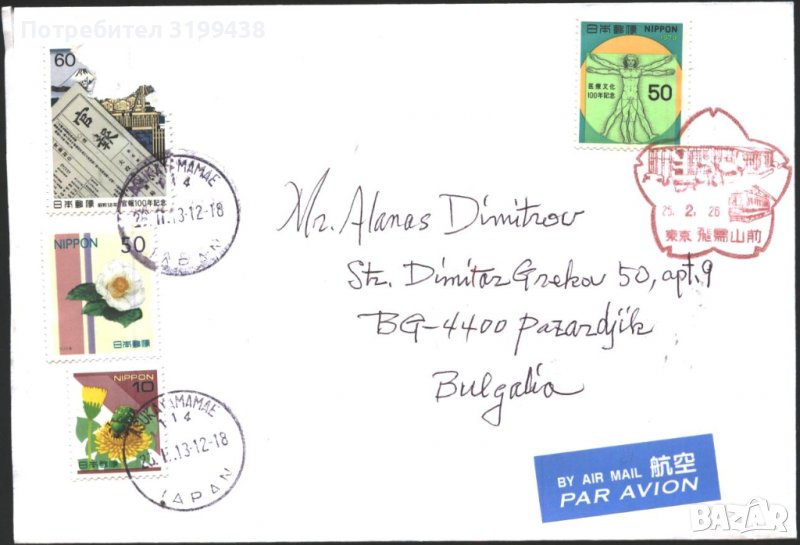 Потребител 3199438
60
官報
日本郵便 昭和58年 官報100年記念
ASUKAYAMAMAE
114
26.II.13-12-18
JAPAN
NIPPON 50
日本郵便
NIPPON
10
日本郵便
UKAYAMAMAE
114
26.II.13-12-18
JAPAN
日本郵便 NIPPON
1979
医療文化
100年記念
50
25. 2. 26
東京 飛鳥山前
Mr. Alanas Dimitrov
Str. Dimitar Grekov 50, apt. 9
BG-4400 Pazardjik
Bulgalia
BY AIR MAIL 航空
PAR AVION
BAZAR